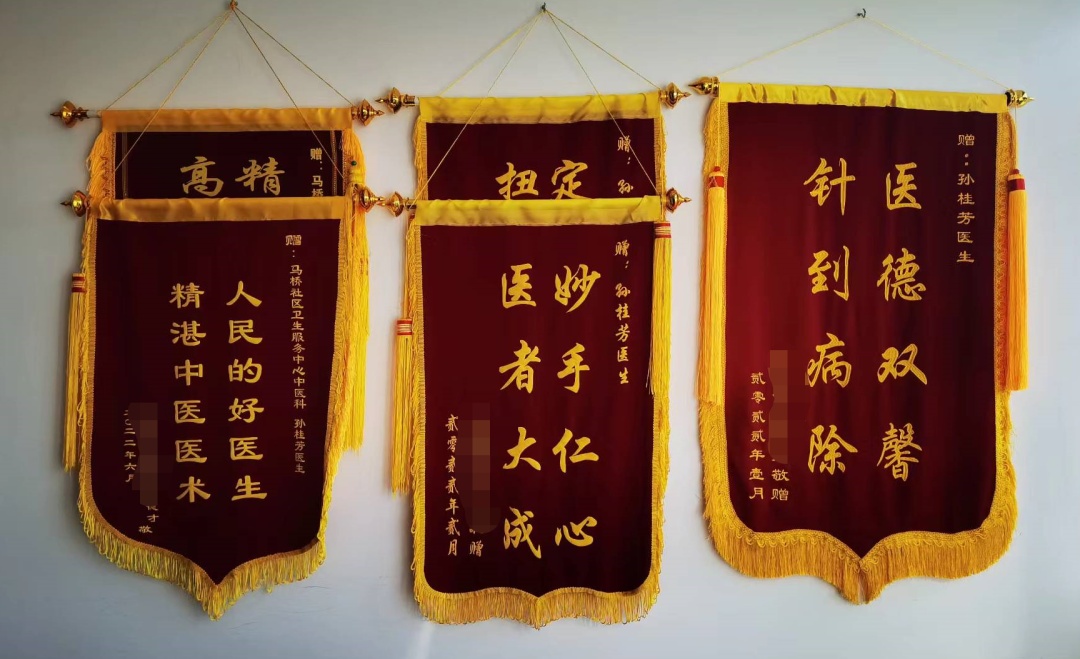 赠：马桥
精
高
赠：马桥社区卫生服务中心中医科 孙桂芳医生
人民的好医生
精湛中医医术
才敬
二〇二二年六月
赠：孙
定
扭
赠：孙桂芳医生
妙手仁心
医者大成
赠
贰零贰贰年贰月
赠：孙桂芳医生
医德双馨
针到病除
敬赠
贰零贰贰年壹月